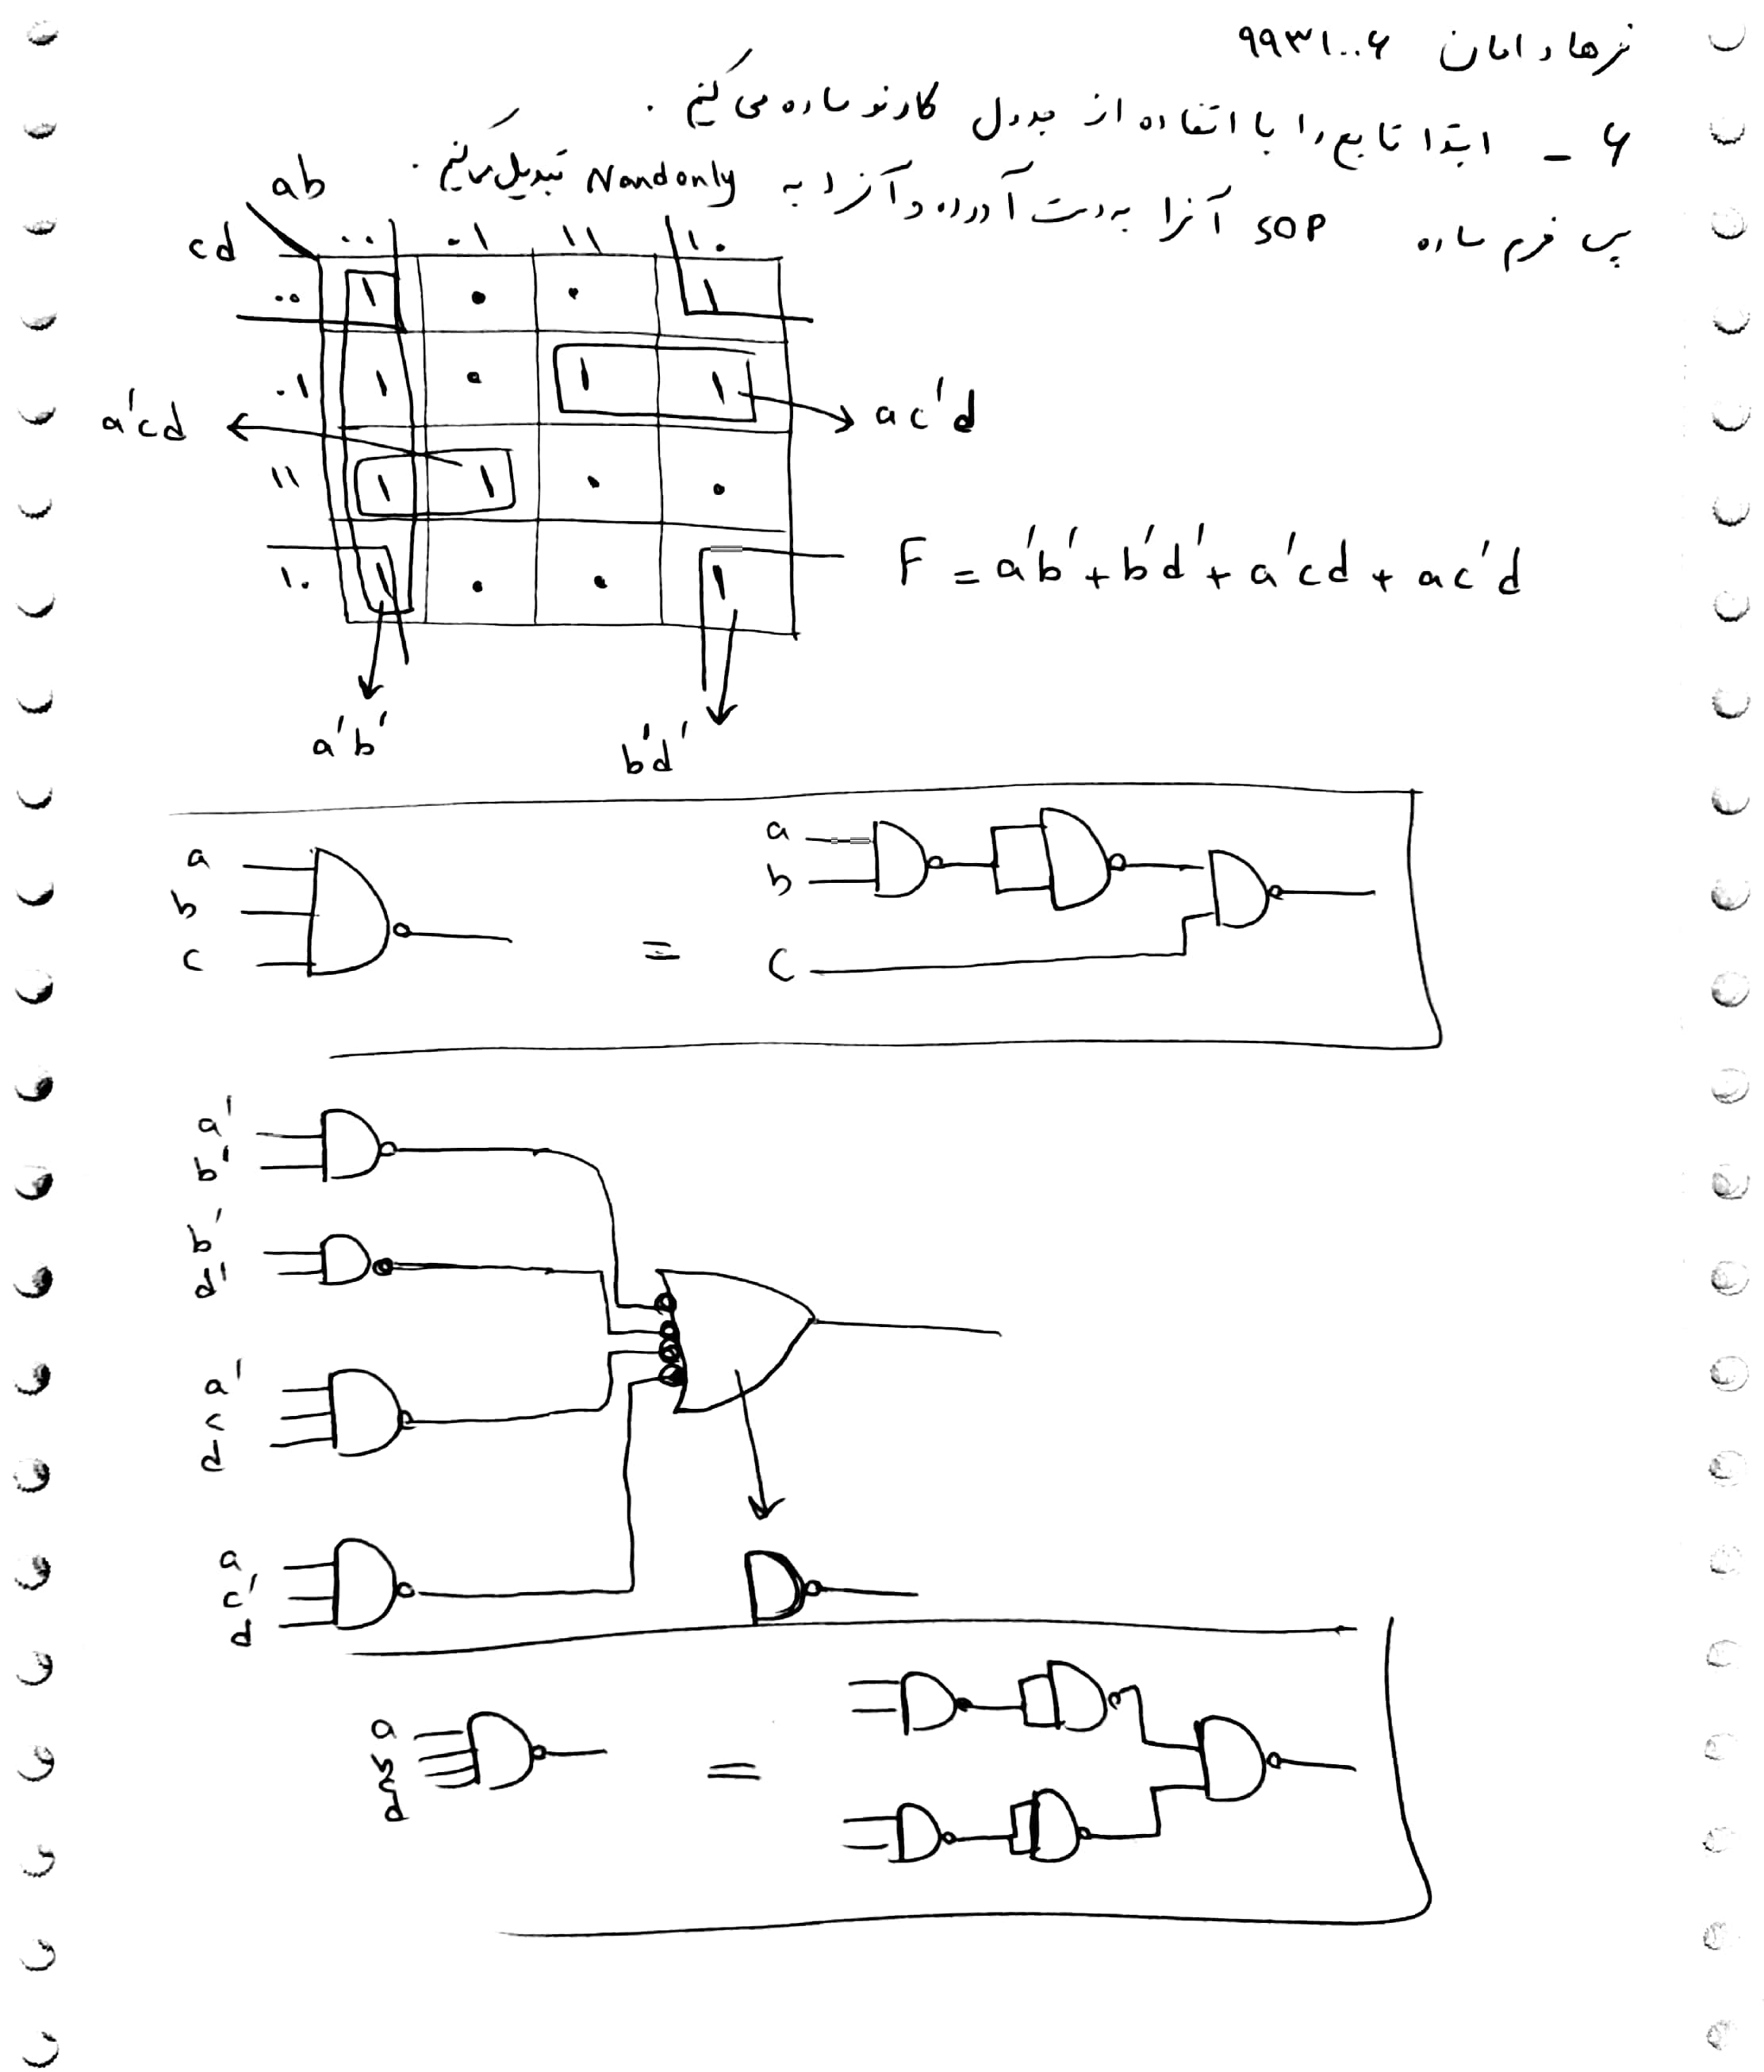 فرهاد امان ۹۹۳۱۰۰۶
۶ - ابتدا تابع را با استفاده از جدول کارنو ساده می‌کنیم .
پس فرم ساده SOP آنرا به‌دست آورده و آنرا به Nandonly تبدیل می‌کنیم .
ab
cd ۰۰ ۰۱ ۱۱ ۱۰
۰۰ ۱ ۰ ۰ ۱
۰۱ ۱ ۰ ۱ ۱
a'cd ac'd
۱۱ ۱ ۱ ۰ ۰
۱۰ ۱ ۰ ۰ ۱
F = a'b' + b'd' + a'cd + ac'd
a'b' b'd'
a
b
c
=
a
b
c
a'
b'
b'
d'
a'
c
d
a
c'
d
a
b
c
d
=